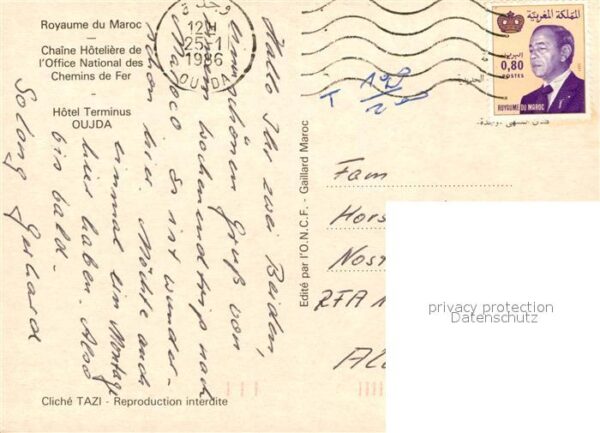 Royaume du Maroc
Chaîne Hôtelière de
l'Office National des
Chemins de Fer
Hôtel Terminus
OUJDA
Hallo Ihr zwei Beiden,
schönen Gruß von
Wochenendtrip nach
Marocco Es ist wunder-
schön hier. Möchte auch
einmal ein Montage
hier haben. Also
bis bald.
Solong Gerhard
Cliché TAZI - Reproduction interdite
Edité par l'O.N.C.F. - Gaillard Maroc
12H
25-1
1986
OUJDA
T
المملكة المغربية
البريد
0,80
POSTES
ROYAUME DU MAROC
Fam
Hors
Nost
RFA
AL
privacy protection
Datenschutz